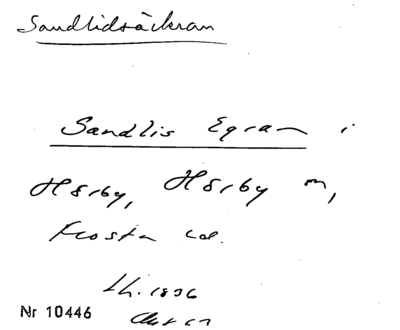 Sandlidsåkran
Sandlis Egran i
Hörby, Hörby m,
Frosta
Lh. 1836
Nr 10446